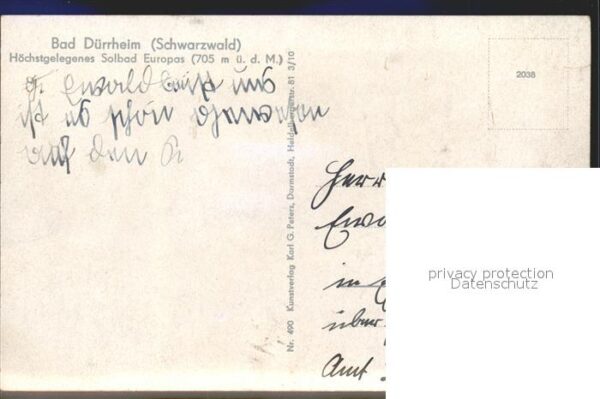 Bad Dürrheim (Schwarzwald)
Höchstgelegenes Solbad Europas (705 m ü. d. M.)
uns
ist es schön gewesen
auf den
Nr. 490 Kunstverlag Karl G. Peters, Darmstadt, Heidelbergerstr. 81 3/10
2038
Herr
in
über
Amt
privacy protection
Datenschutz